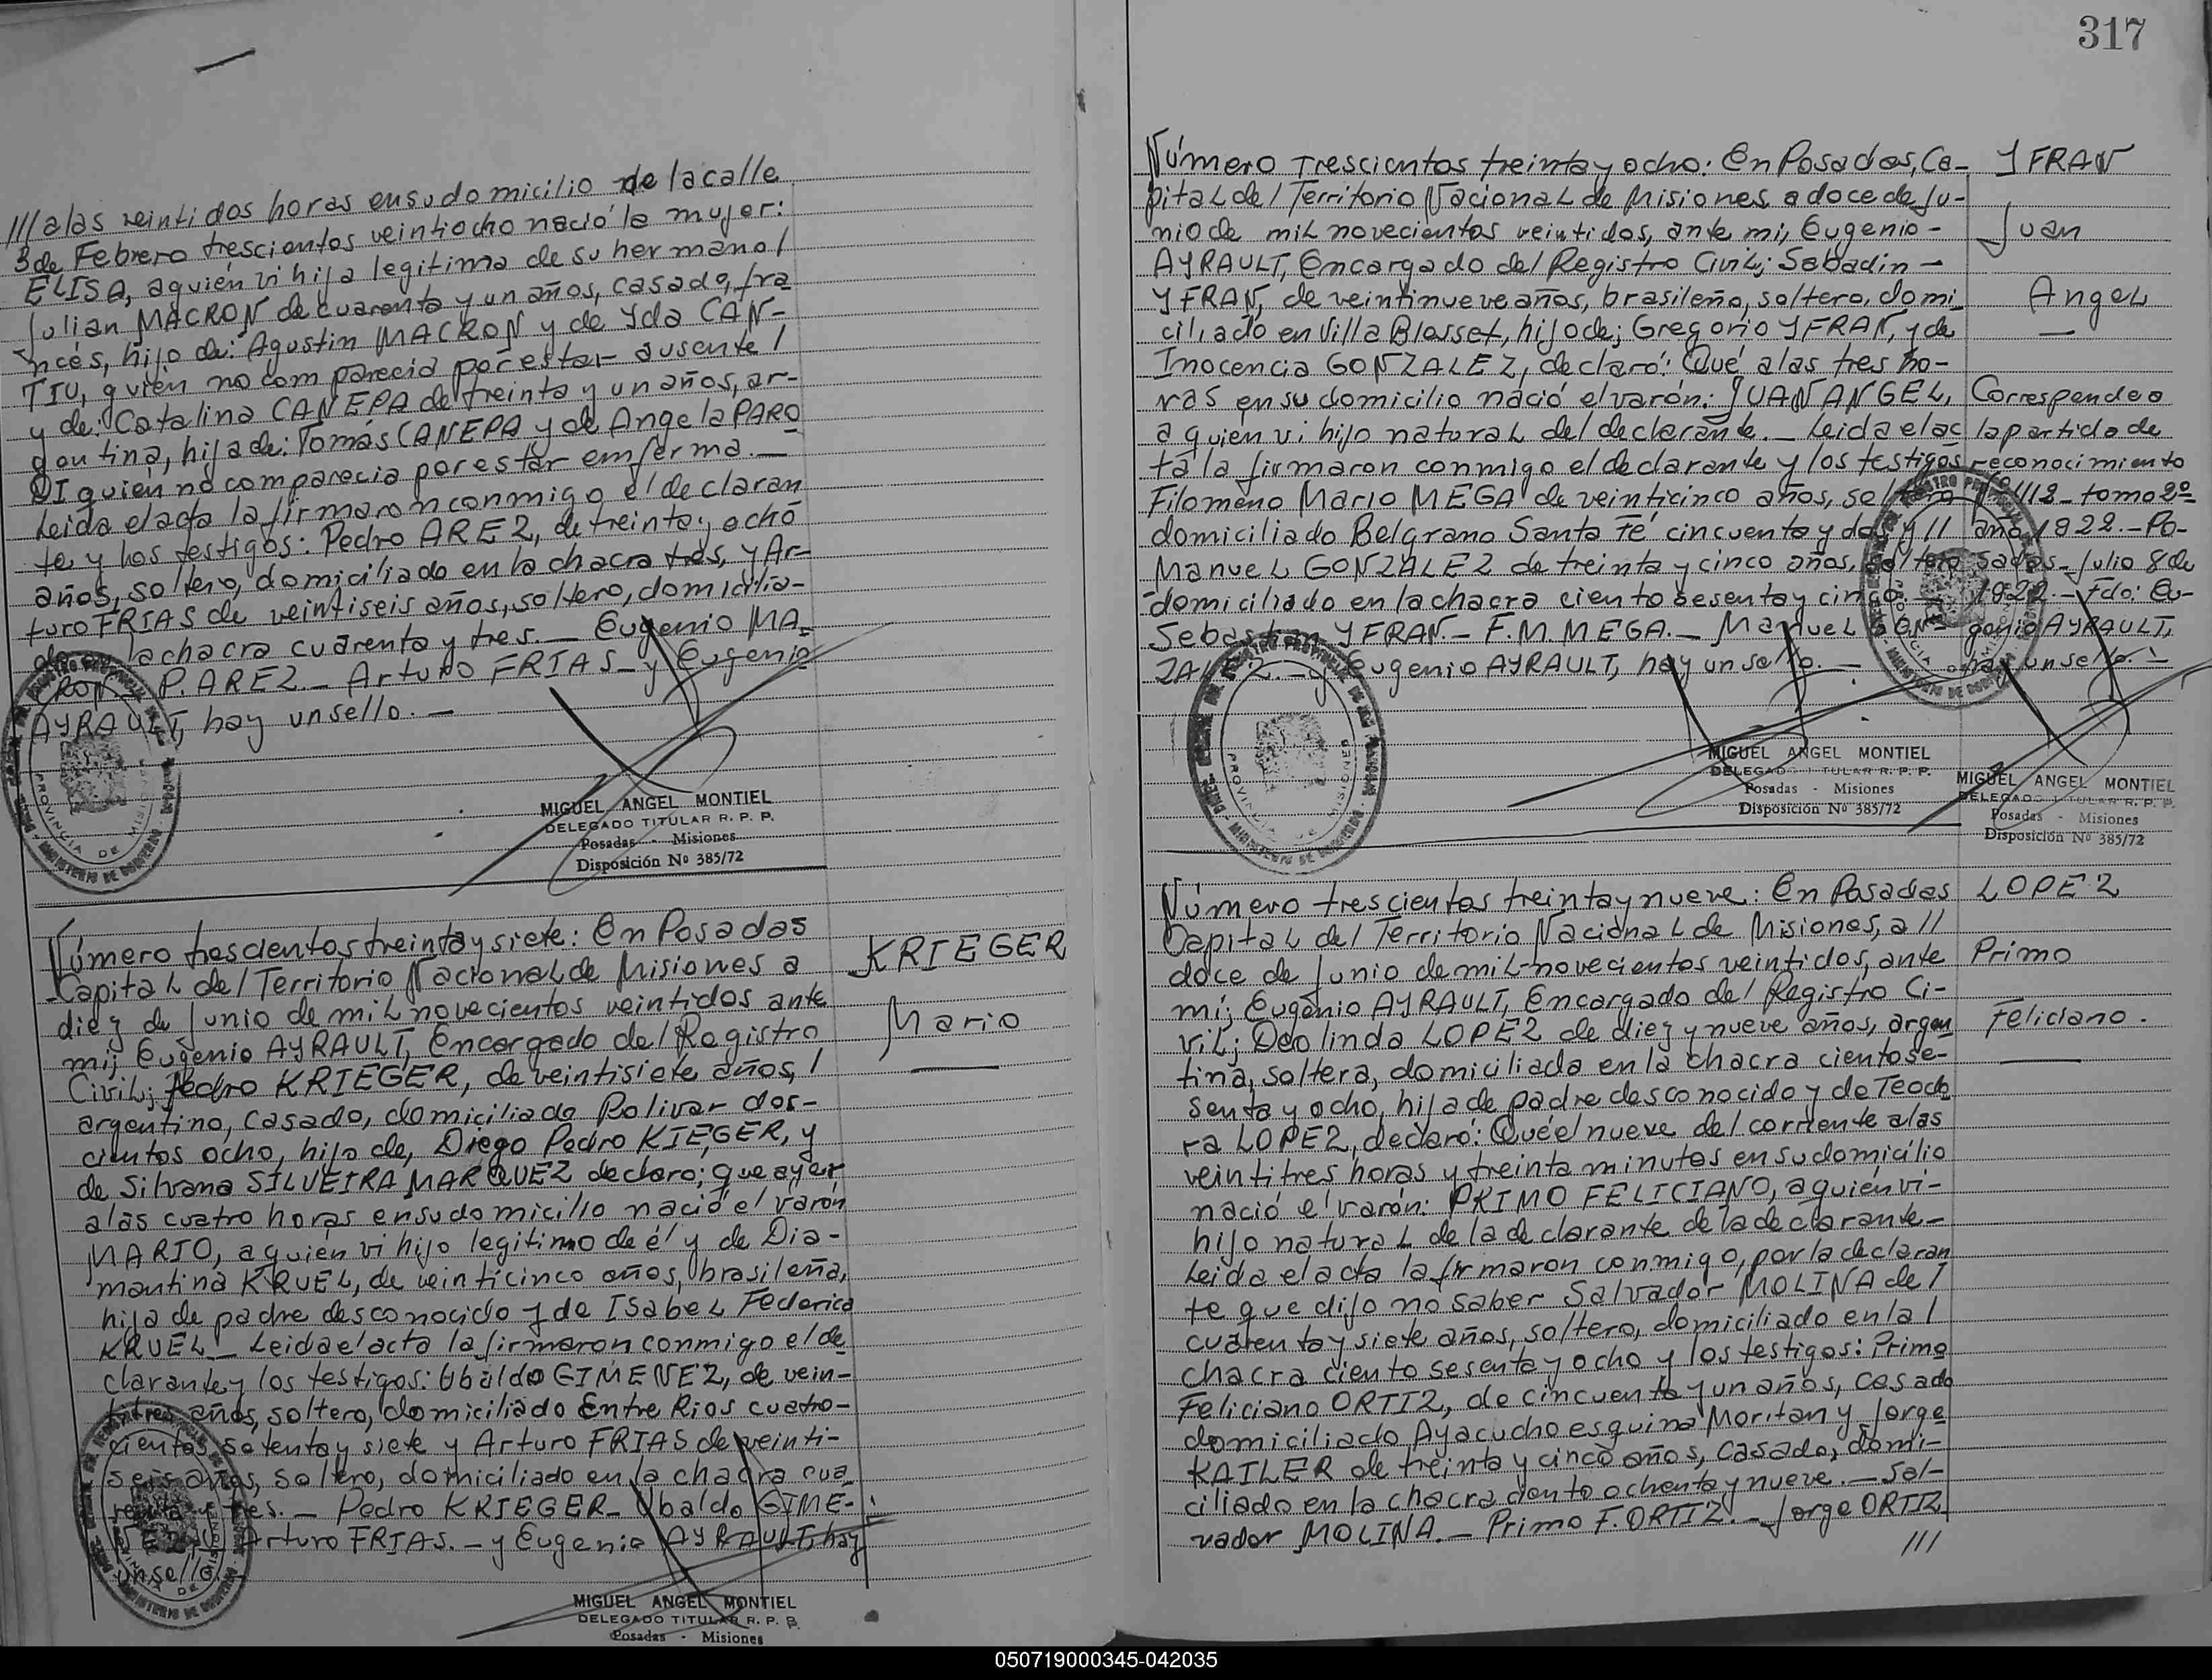 /// a las veintidos horas en su domicilio de la calle
3 de Febrero trescientos veintiocho nació la mujer:
ELISA, a quién vi hija legitima de su hermano/
Julian MACRON de cuarenta y un años, casado, fra
ncés, hijo de: Agustin MACRON y de Yda CAN-
TIU, quién no comparecia por estar ausente/
y de: Catalina CANEPA de treinta y un años, ar-
gentina, hija de: Tomás CANEPA y de Angela PARO
DI quién no comparecia por estar emferma.—
Leida el acta la firmaron conmigo el declaran
te y los testigos: Pedro AREZ, de treinta y ocho
años, soltero, domiciliado en la chacra tres, y Ar-
turo FRIAS de veintiseis años, soltero, domicilia-
do la chacra cuarenta y tres.— Eugenio MA-
CRON P. AREZ.— Arturo FRIAS— y Eugenio
AYRAULT, hay un sello.—
MIGUEL ANGEL MONTIEL
DELEGADO TITULAR R. P. P.
Posadas - Misiones
Disposición Nº 385/72
Número trescientos treinta y siete: En Posadas
Capital del Territorio Nacional de Misiones a
diez de Junio de mil novecientos veintidos ante
mi; Eugenio AYRAULT, Encargado del Registro
Civil; Pedro KRIEGER, de veintisiete años, /
argentino, casado, domiciliado Bolivar dos-
cientos ocho, hijo de, Diego Pedro KIEGER, y
de Silvana SILVEIRA MARQUEZ declaro; que ayer
a las cuatro horas en su domicilio nació el varón
MARIO, a quién vi hijo legitimo de él y de Dia-
mantina KRUEL, de veinticinco años, brasileña,
hija de padre desconocido y de Isabel Federica
KRUEL— Leida el acta la firmaron conmigo el de
clarante y los testigos: Ubaldo GIMENEZ, de vein-
titres años, soltero, domiciliado Entre Rios cuatro-
cientos setenta y siete y Arturo FRIAS de veinti-
seis años, soltero, domiciliado en la chacra cua
renta y tres.— Pedro KRIEGER— Ubaldo GIME-
NEZ Arturo FRIAS.— y Eugenio AYRAULT, hay
un sello.—
KRIEGER
Mario
MIGUEL ANGEL MONTIEL
DELEGADO TITULAR R. P. P.
Posadas - Misiones
317
Número Trescientos treinta y ocho: En Posadas, Ca-
pital del Territorio Nacional de Misiones a doce de Ju-
nio de mil novecientos veintidos, ante mi, Eugenio-
AYRAULT, Encargado del Registro Civil; Sabadin—
YFRAN, de veintinueve años, brasileño, soltero, domi-
ciliado en Villa Blosset, hijo de; Gregorio YFRAN, y de
Inocencia GONZALEZ, declaró: Qué a las tres ho-
ras en su domicilio nació el varón: JUAN ANGEL,
a quién vi hijo natural del declarante.— Leida el ac
ta la firmaron conmigo el declarante y los testigos
Filomeno Mario MEGA de veinticinco años, soltero
domiciliado Belgrano Santa Fé cincuenta y dos y //
Manuel GONZALEZ de treinta y cinco años, soltero
domiciliado en la chacra ciento sesenta y cinco.—
Sebastian YFRAN.— F. M. MEGA.— Manuel GON-
ZALEZ.— y Eugenio AYRAULT, hay un sello.—
YFRAN
Juan
Angel
Corresponde a
la partida de
reconocimiento
Nº 112— tomo 2º
año 1922.— Po-
sadas— Julio 8 de
1922.— Fdo: Eu-
genio AYRAULT,
hay un sello.—
MIGUEL ANGEL MONTIEL
DELEGADO TITULAR R. P. P.
Posadas - Misiones
Disposición Nº 385/72
MIGUEL ANGEL MONTIEL
DELEGADO TITULAR R. P. P.
Posadas - Misiones
Disposición Nº 385/72
Número trescientos treinta y nueve: En Posadas
Capital del Territorio Nacional de Misiones, a //
doce de Junio de mil novecientos veintidos, ante
mi; Eugenio AYRAULT, Encargado del Registro Ci-
vil; Deolinda LOPEZ de diez y nueve años, argen
tina, soltera, domiciliada en la chacra ciento se-
senta y ocho, hija de padre desconocido y de Teodo
ra LOPEZ, declaró: Qué el nueve del corriente a las
veintitres horas y treinta minutos en su domicilio
nació el varón: PRIMO FELICIANO, a quién vi-
hijo natural de la declarante de la declarante—
Leida el acta la firmaron conmigo, por la declaran
te que dijo no saber Salvador MOLINA de /
cuarenta y siete años, soltero, domiciliado en la /
chacra ciento sesenta y ocho y los testigos: Primo
Feliciano ORTIZ, de cincuenta y un años, casado
domiciliado Ayacucho esquina Moritan y Jorge
KAILER de treinta y cinco años, casado, domi-
ciliado en la chacra ciento ochenta y nueve.— Sal-
vador MOLINA.— Primo F. ORTIZ.— Jorge ORTIZ
///
LOPEZ
Primo
Feliciano.
050719000345-042035